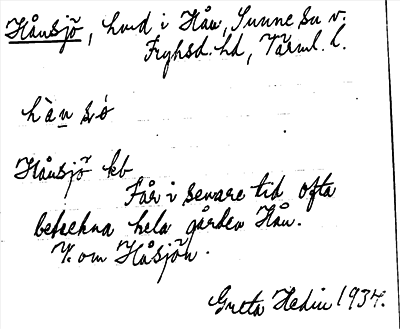 Hånsjö, hmd i Hån, Sunne sn v.
Fryksd. hd, Värml. l.
hà̀n sö
Hånsjö kb
Får i senare tid ofta
beteckna hela gården Hån.
V. om Håsjön.
Greta Hedin 1934.